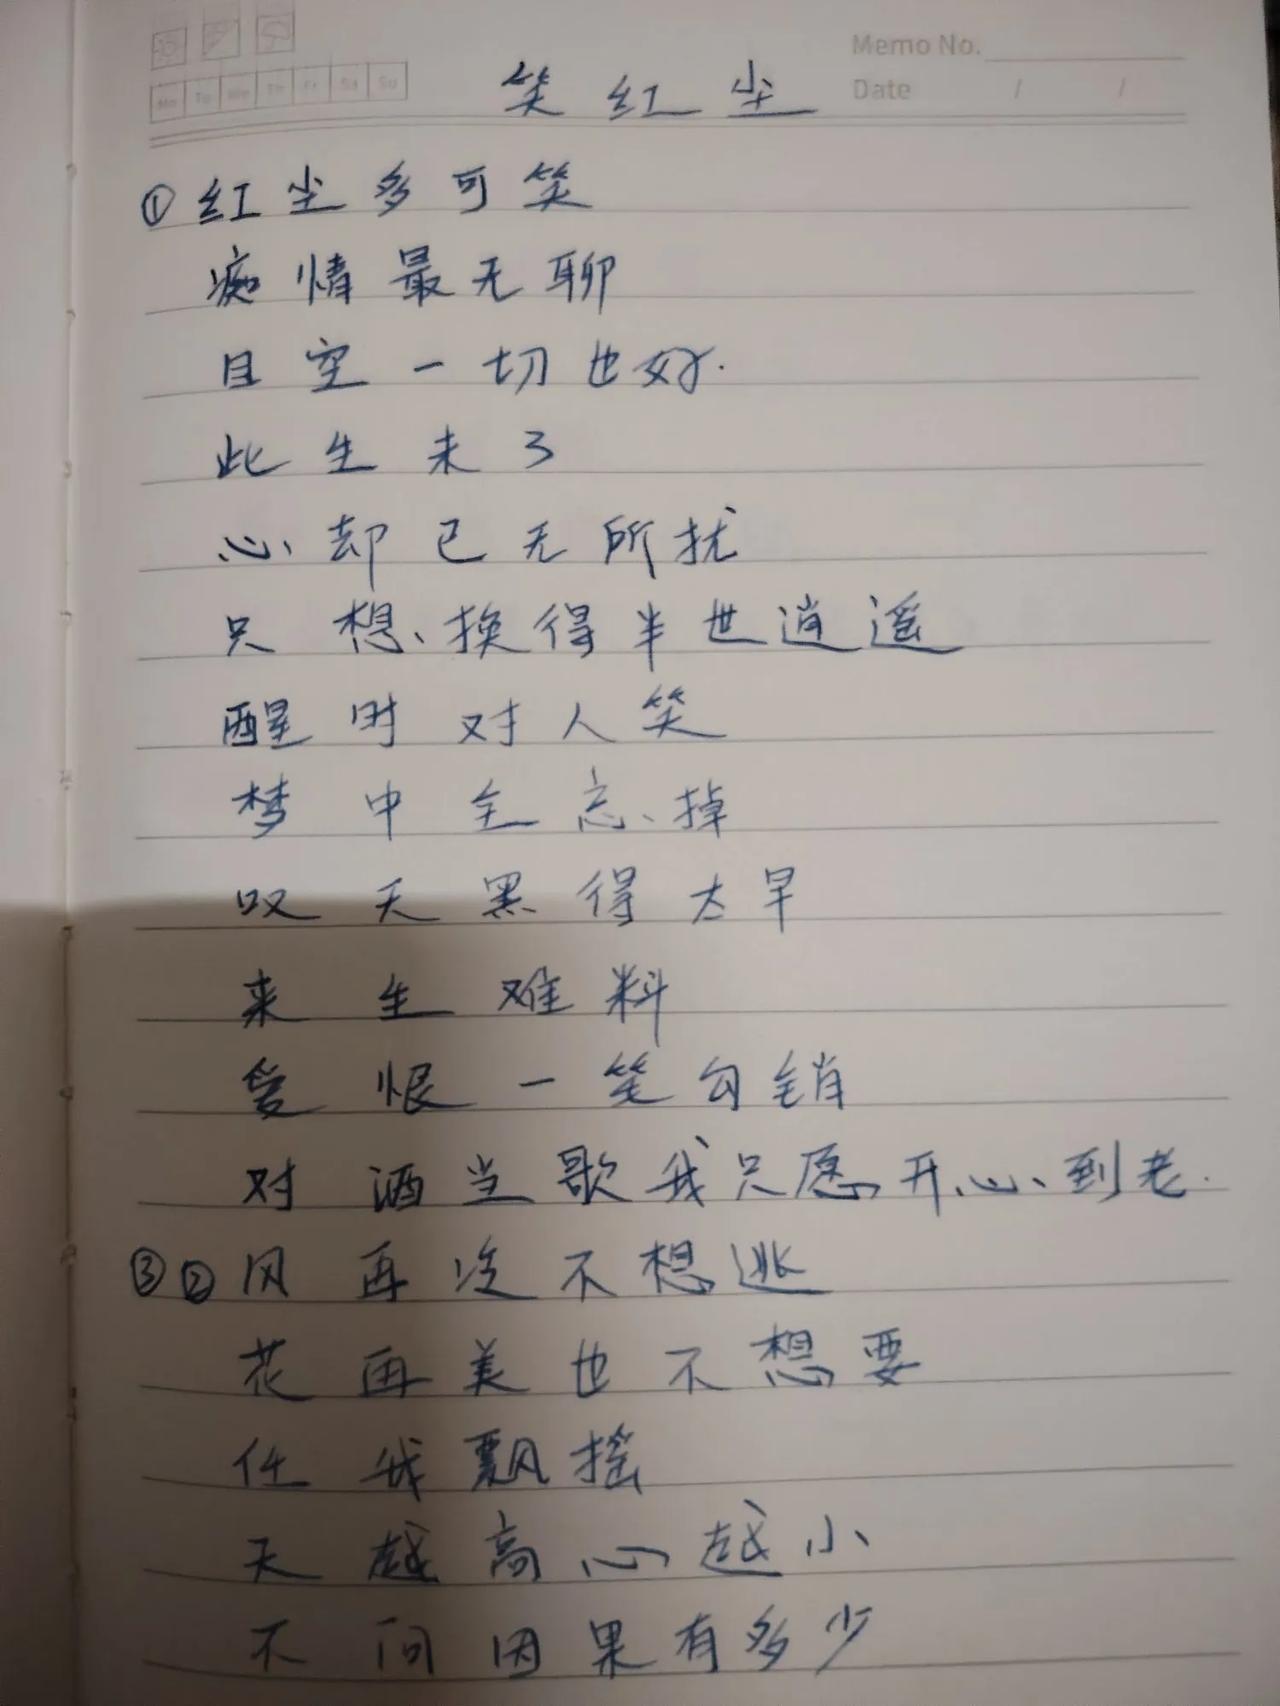 Memo No.
Mo Tu We Th Fr Sa Su
Date / /
笑红尘
①红尘多可笑
痴情最无聊
目空一切也好.
此生未了
心却已无所扰
只想换得半世逍遥
醒时对人笑
梦中全忘掉
叹天黑得太早
来生难料
爱恨一笔勾销
对酒当歌我只愿开心到老.
③②风再冷不想逃
花再美也不想要
任我飘摇
天越高心越小
不问因果有多少